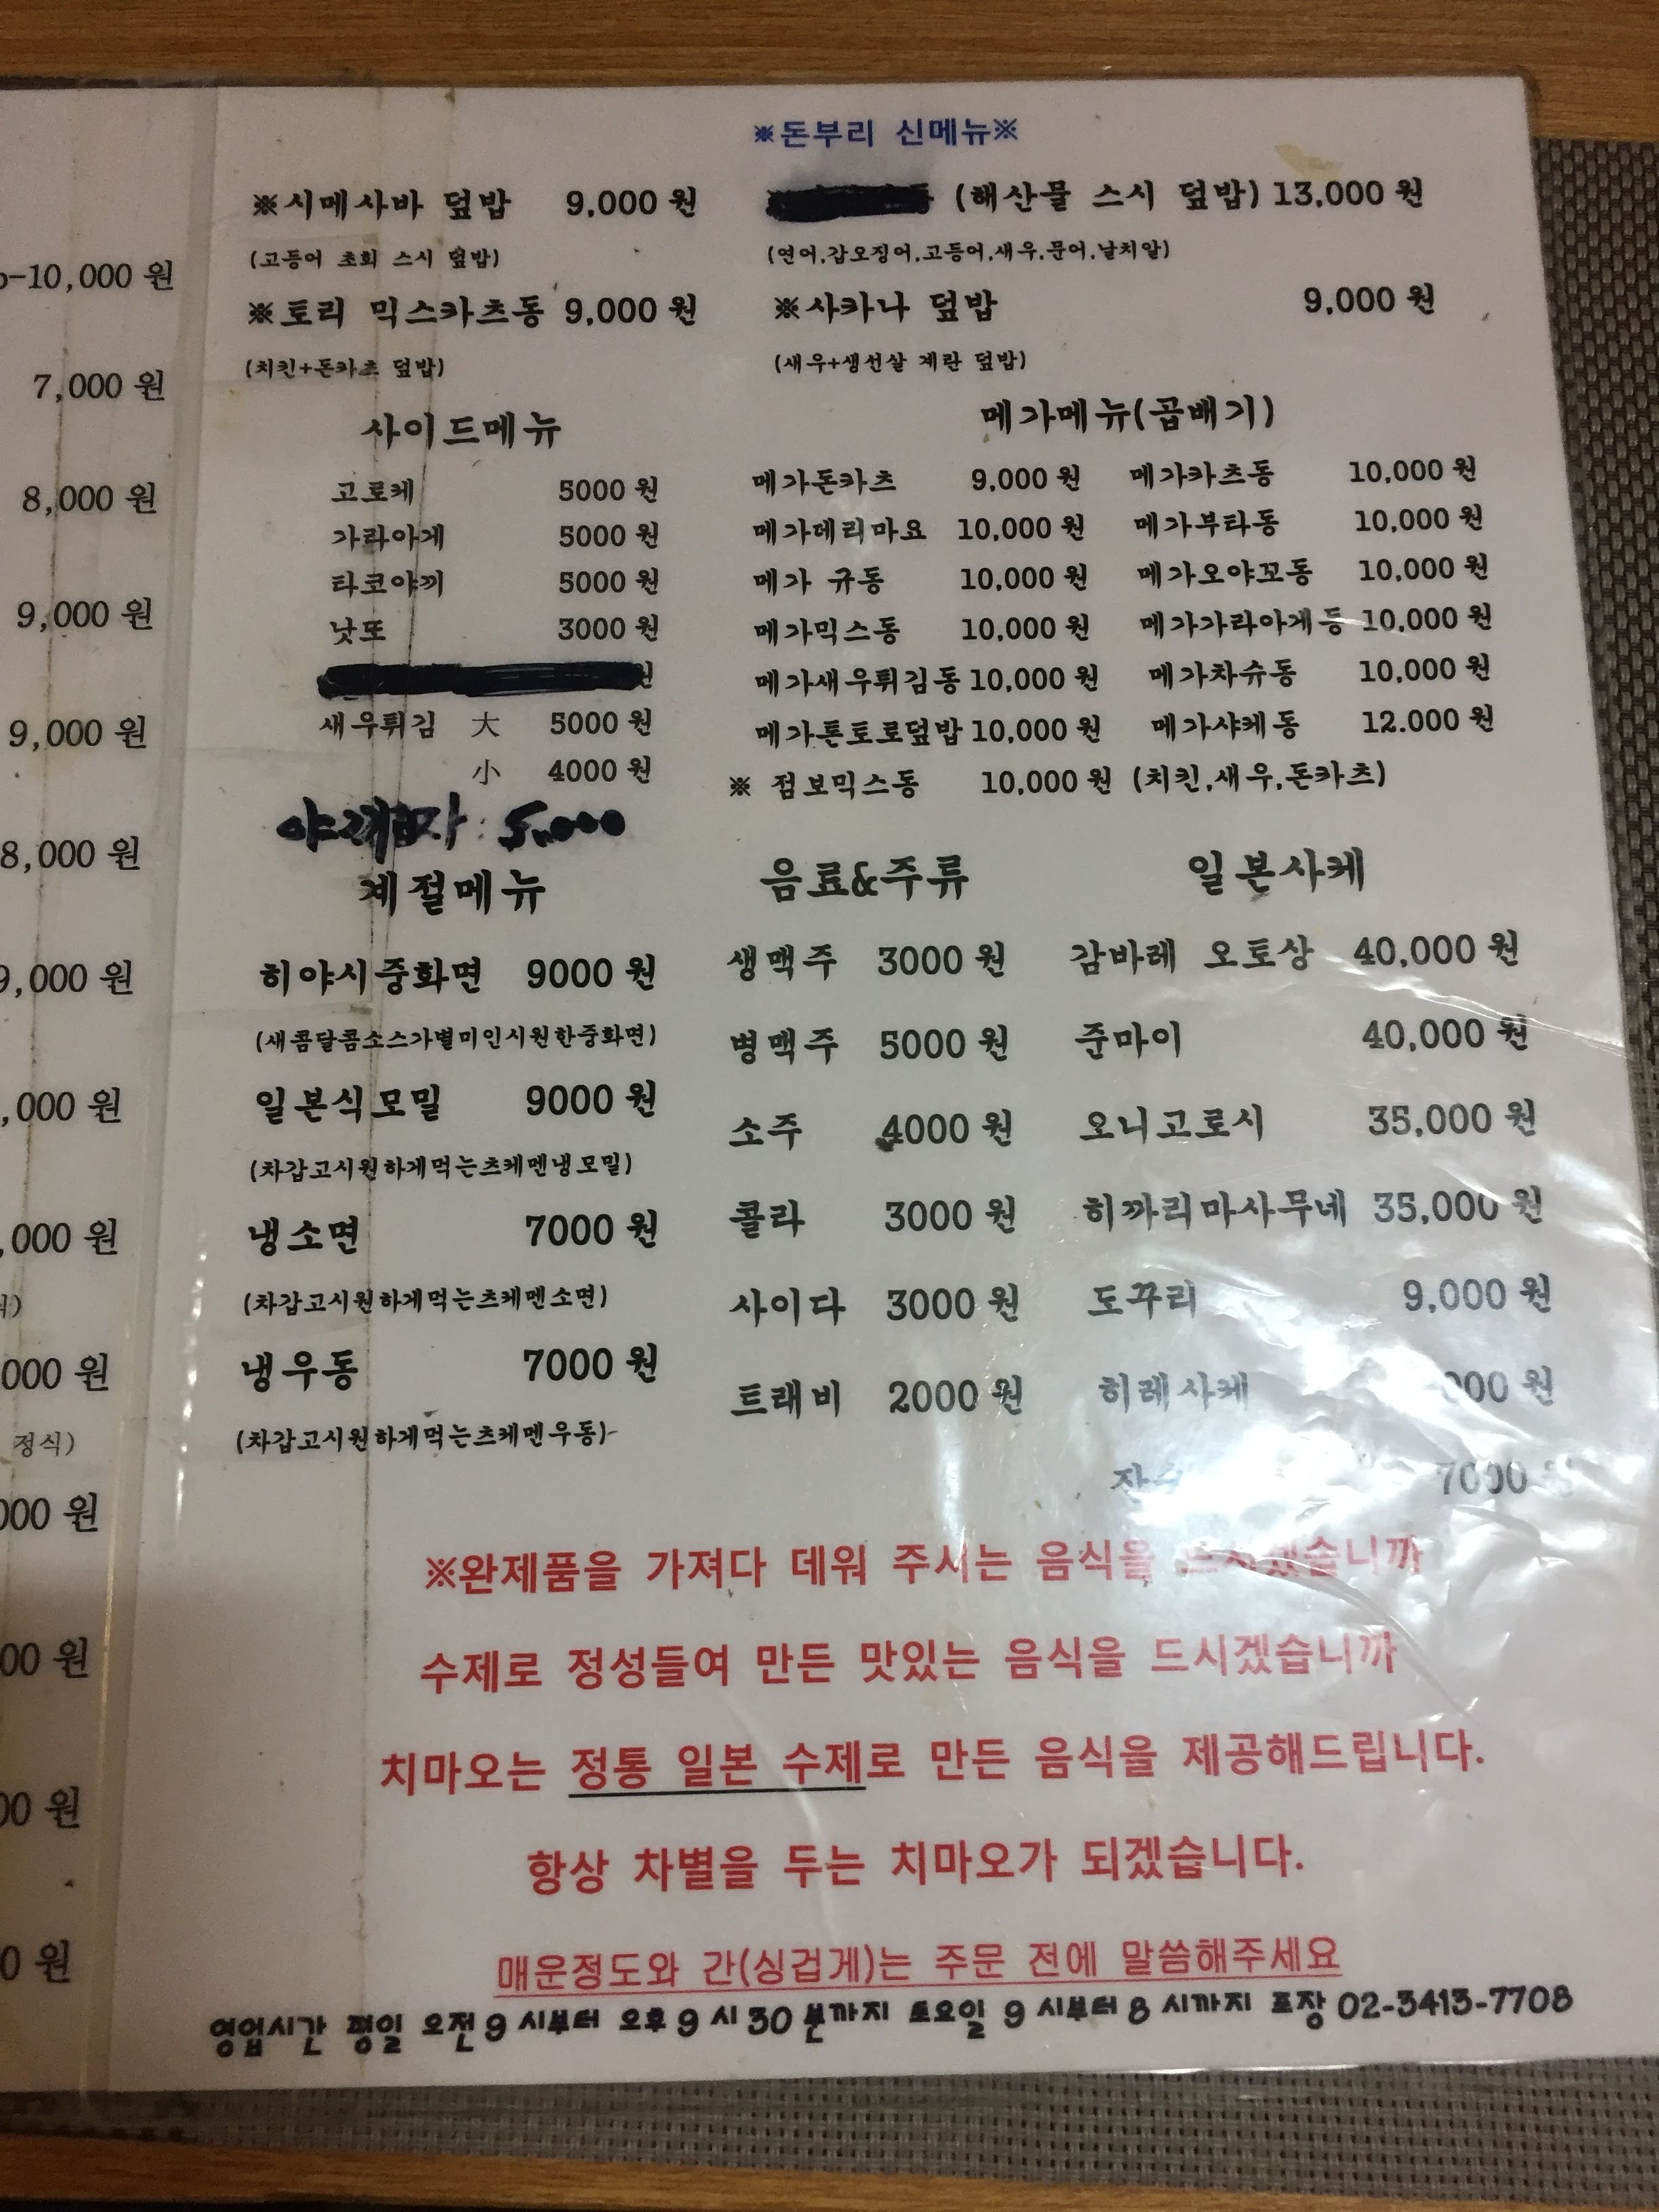 ※돈부리 신메뉴※
※시메사바 덮밥 9,000 원
(해산물 스시 덮밥) 13,000 원
(고등어 초회 스시 덮밥)
(연어,갑오징어,고등어,새우,문어,날치알)
※토리 믹스카츠동 9,000 원
※사카나 덮밥 9,000 원
(치킨+돈카츠 덮밥)
(새우+생선살 계란 덮밥)
사이드메뉴
고로케 5000 원
가라아게 5000 원
타코야끼 5000 원
낫또 3000 원
원
새우튀김 大 5000 원
小 4000 원
5,000
메가메뉴(곱배기)
메가돈카츠 9,000 원 메가카츠동 10,000 원
메가데리마요 10,000 원 메가부타동 10,000 원
메가 규동 10,000 원 메가오야꼬동 10,000 원
메가믹스동 10,000 원 메가가라아게동 10,000 원
메가새우튀김동 10,000 원 메가차슈동 10,000 원
메가톤토로덮밥 10,000 원 메가샤케동 12.000 원
※ 점보믹스동 10,000 원 (치킨,새우,돈카츠)
계절메뉴
히야시중화면 9000 원
(새콤달콤소스가별미인시원한중화면)
일본식모밀 9000 원
(차갑고시원하게먹는츠케멘냉모밀)
냉소면 7000 원
(차갑고시원하게먹는츠케멘소면)
냉우동 7000 원
(차갑고시원하게먹는츠케멘우동)
음료&주류
생맥주 3000 원
병맥주 5000 원
소주 4000 원
콜라 3000 원
사이다 3000 원
트래비 2000 원
일본사케
감바레 오토상 40,000 원
준마이 40,000 원
오니고로시 35,000 원
히까리마사무네 35,000 원
도꾸리 9,000 원
히레사케 000 원
7000 원
※완제품을 가져다 데워 주시는 음식을 드시겠습니까
수제로 정성들여 만든 맛있는 음식을 드시겠습니까
치마오는 정통 일본 수제로 만든 음식을 제공해드립니다.
항상 차별을 두는 치마오가 되겠습니다.
매운정도와 간(싱겁게)는 주문 전에 말씀해주세요
영업시간 평일 오전 9 시부터 오후 9 시 30 분까지 토요일 9 시부터 8 시까지 포장 02-3413-7708
-10,000 원
7,000 원
8,000 원
9,000 원
9,000 원
8,000 원
9,000 원
,000 원
,000 원
000 원
정식)
000 원
00 원
00 원
0 원